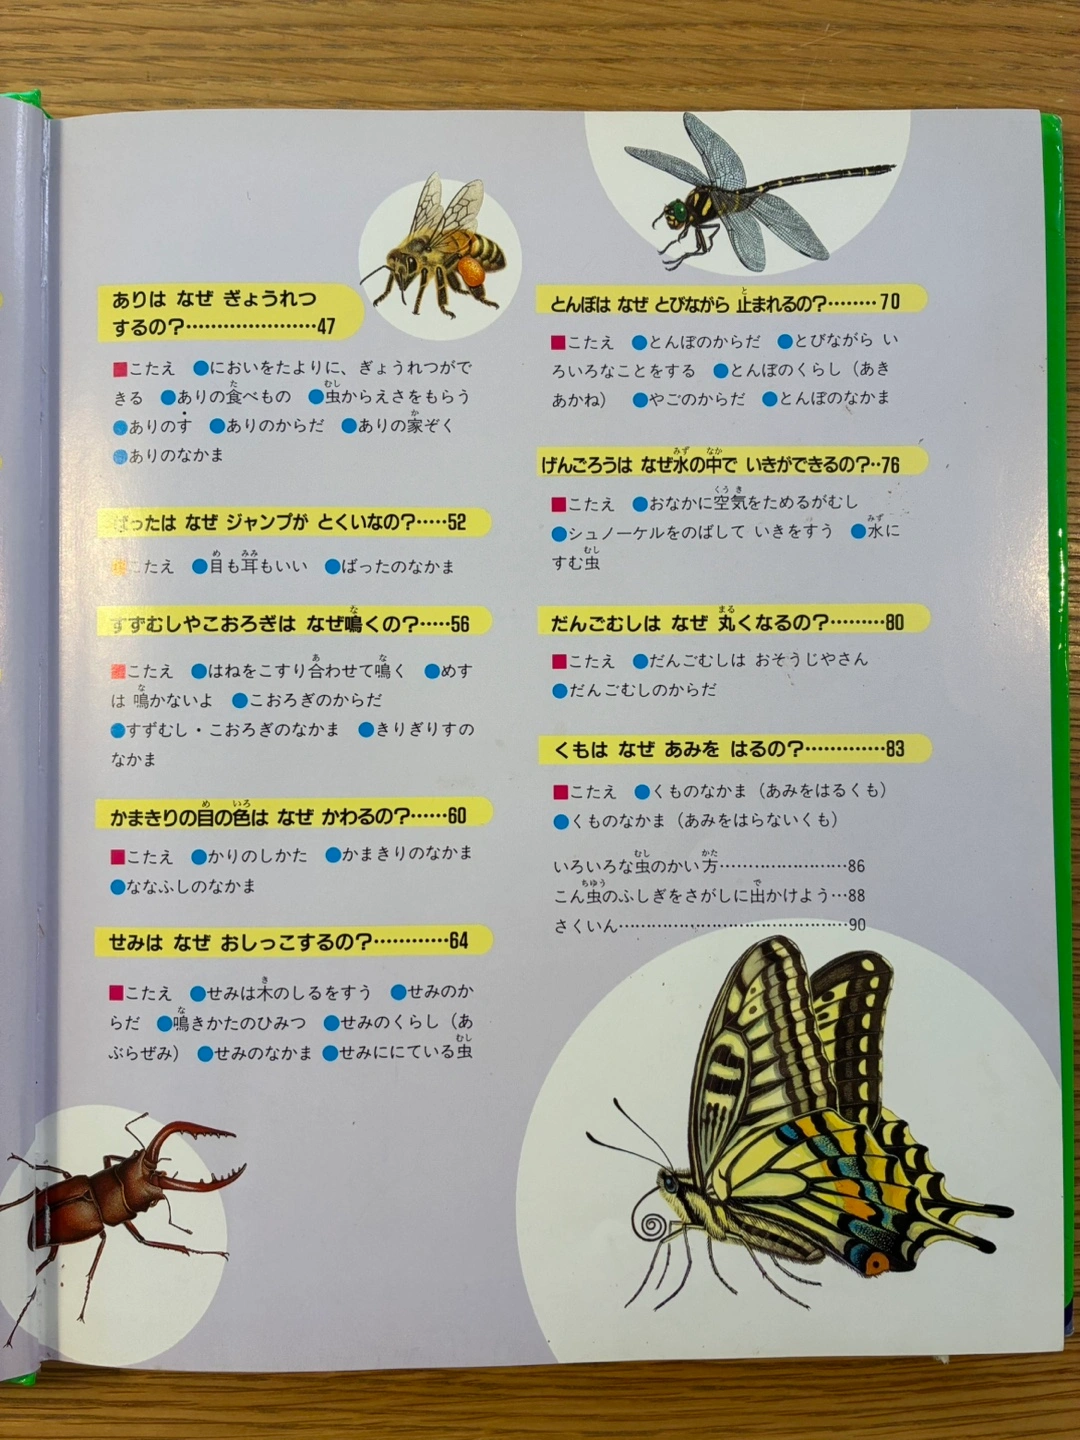 ありは なぜ ぎょうれつ
するの?…………………47
■こたえ ●においをたよりに、ぎょうれつがで
きる ●ありの食べもの ●虫からえさをもらう
●ありのす ●ありのからだ ●ありの家ぞく
●ありのなかま
ばったは なぜ ジャンプが とくいなの?……52
■こたえ ●目も耳もいい ●ばったのなかま
すずむしやこおろぎは なぜ鳴くの?……56
■こたえ ●はねをこすり合わせて鳴く ●めす
は 鳴かないよ ●こおろぎのからだ
●すずむし・こおろぎのなかま ●きりぎりすの
なかま
かまきりの目の色は なぜ かわるの?……60
■こたえ ●かりのしかた ●かまきりのなかま
●ななふしのなかま
せみは なぜ おしっこするの?…………64
■こたえ ●せみは木のしるをすう ●せみのか
らだ ●鳴きかたのひみつ ●せみのくらし(あ
ぶらぜみ) ●せみのなかま ●せみににている虫
とんぼは なぜ とびながら 止まれるの?………70
■こたえ ●とんぼのからだ ●とびながら い
ろいろなことをする ●とんぼのくらし(あき
あかね) ●やごのからだ ●とんぼのなかま
げんごろうは なぜ水の中で いきができるの?…76
■こたえ ●おなかに空気をためるがむし
●シュノーケルをのばして いきをすう ●水に
すむ虫
だんごむしは なぜ 丸くなるの?………80
■こたえ ●だんごむしは おそうじやさん
●だんごむしのからだ
くもは なぜ あみを はるの?…………83
■こたえ ●くものなかま(あみをはるくも)
●くものなかま(あみをはらないくも)
いろいろな虫のかい方…………………86
こん虫のふしぎをさがしに出かけよう…88
さくいん………………………………90